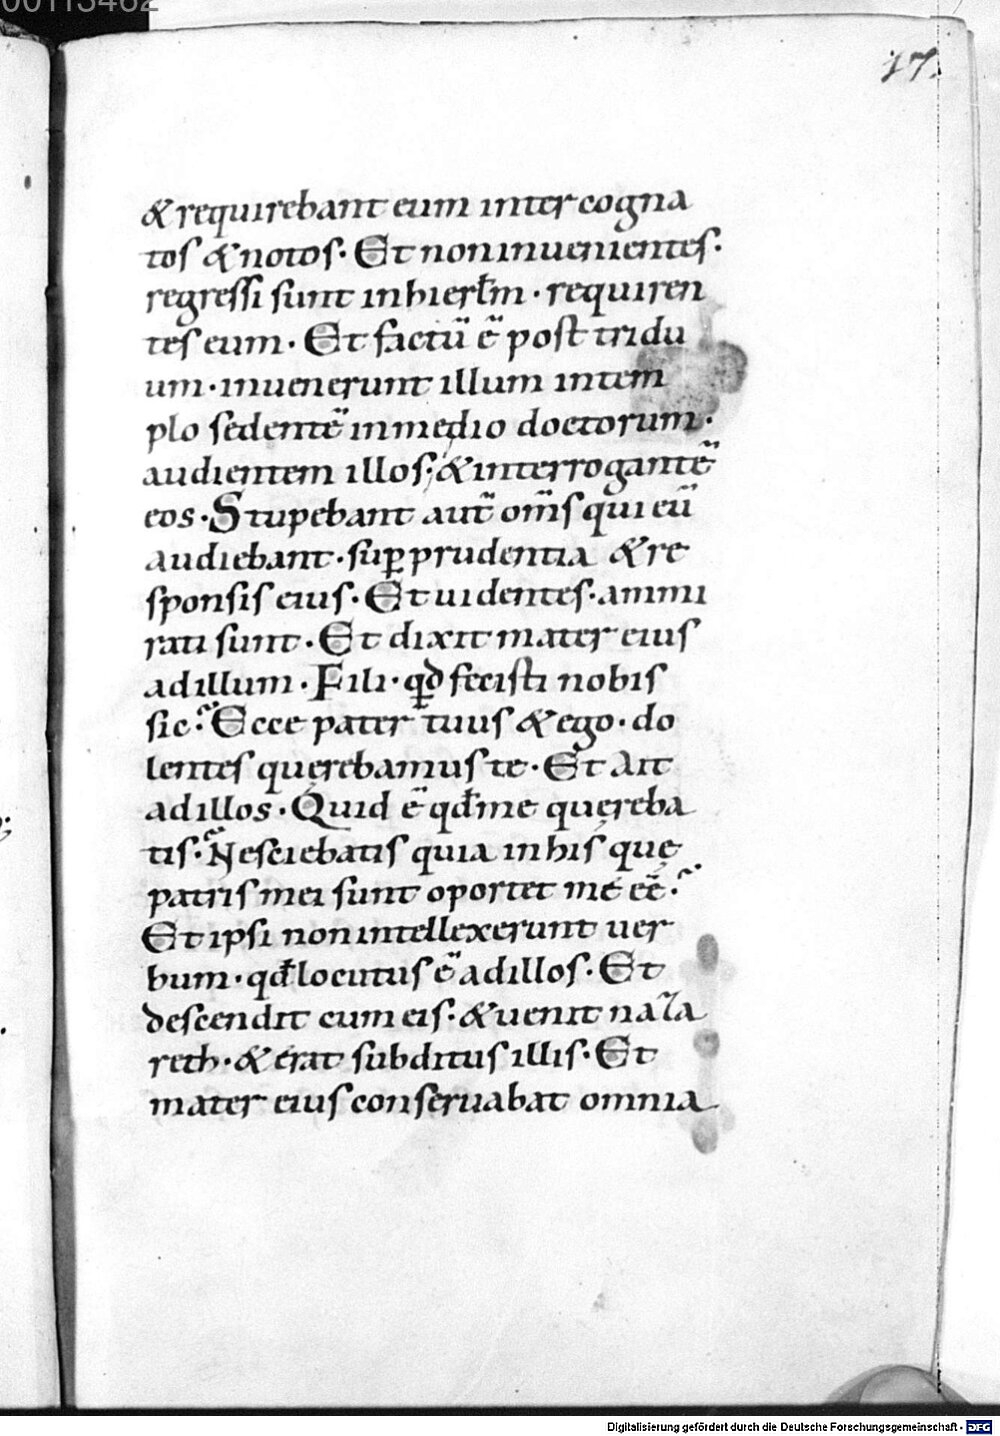 00113462
17.
& requirebant eum inter cogna
tos & notos. Et non inuenientes.
regressi sunt in hierłm. requiren
tes eum. Et factū ē post tridu
um. inuenerunt illum in tem
plo sedentē in medio doctorum.
audientem illos. & interrogantē
eos. Stupebant aut̄ om̄s qui eū
audiebant. suꝑ prudentia & re
sponsis eius. Et uidentes. ammi
rati sunt. Et dixit mater eius
ad illum. Fili. qd fecisti nobis
sic? Ecce pater tuus & ego. do
lentes quęrebamus te. Et Ait
ad illos. Quid ē qđ me quęreba
tis? Nesciebatis quia in his quę
patris mei sunt oportet me eē?
Et ipsi non intellexerunt uer
bum. qđ locutus ē ad illos. Et
descendit cum eis. & uenit naza
reth. & erat subditus illis. Et
mater eius conseruabat omnia
Digitalisierung gefördert durch die Deutsche Forschungsgemeinschaft - DFG